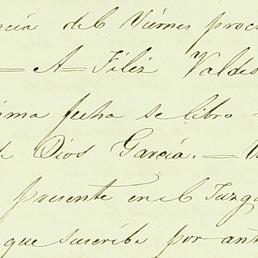 ncia del Viernes proc
— A Feliz Valdes
ima fecha se libro
de Dios Garcia. —
presente en el Juzga
que suscribe por ant